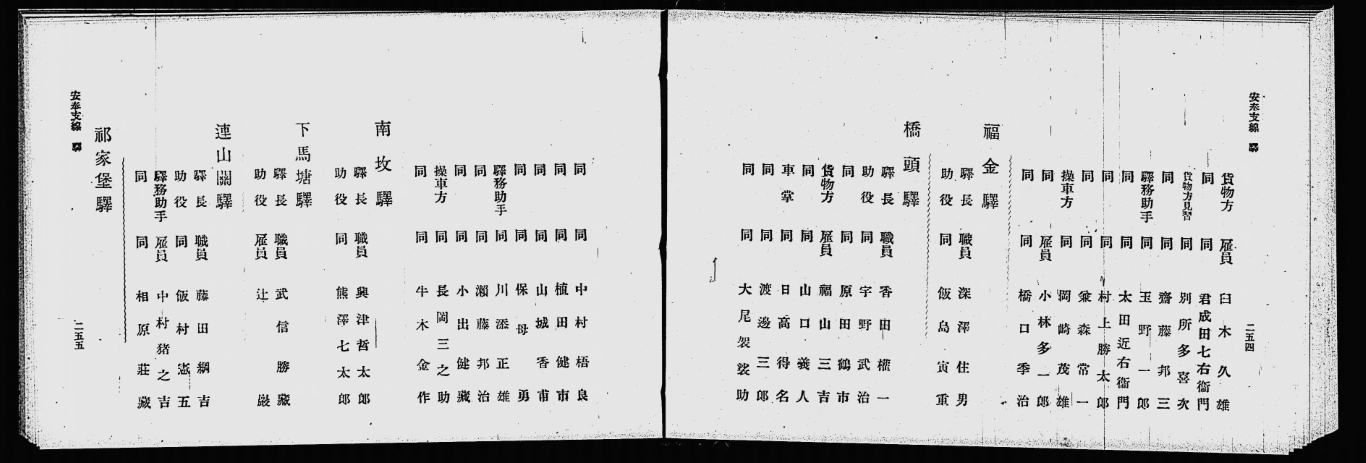 安奉支線 驛
二五四
貨物方 雇員 臼木久雄
同 同 君成田七右衞門
貨物方見習 同 別所多喜次
同 同 齋藤邦三
驛務助手 同 玉野一郎
同 同 太田近右衞門
同 同 村上勝太郎
同 同 兼森常一
操車方 同 岡崎茂雄
同 雇員 小林多一郎
同 同 橋口季治
福金驛
驛長 職員 深澤住男
助役 同 飯島寅重
橋頭驛
驛長 職員 香田權一
助役 同 宇野武治
同 同 原田鶴市
貨物方 雇員 福山三吉
同 同 山口義人
車掌 同 日高得名
同 同 渡邊三郎
同 同 大尾袈裟助
同 同 中村梧良
同 同 植田健市
同 同 山城香甫
同 同 保母勇
驛務助手 同 川添正雄
同 同 瀨藤邦治
同 同 小出健藏
操車方 同 長岡三之助
同 同 牛木金作
南坟驛
驛長 職員 興津哲太郎
助役 同 熊澤七太郎
下馬塘驛
驛長 職員 武信勝藏
助役 雇員 辻巖
連山關驛
驛長 職員 藤田綱吉
助役 同 飯村憲五
驛務助手 雇員 中村猪之吉
同 同 相原莊藏
祁家堡驛
安奉支線 驛
二五五